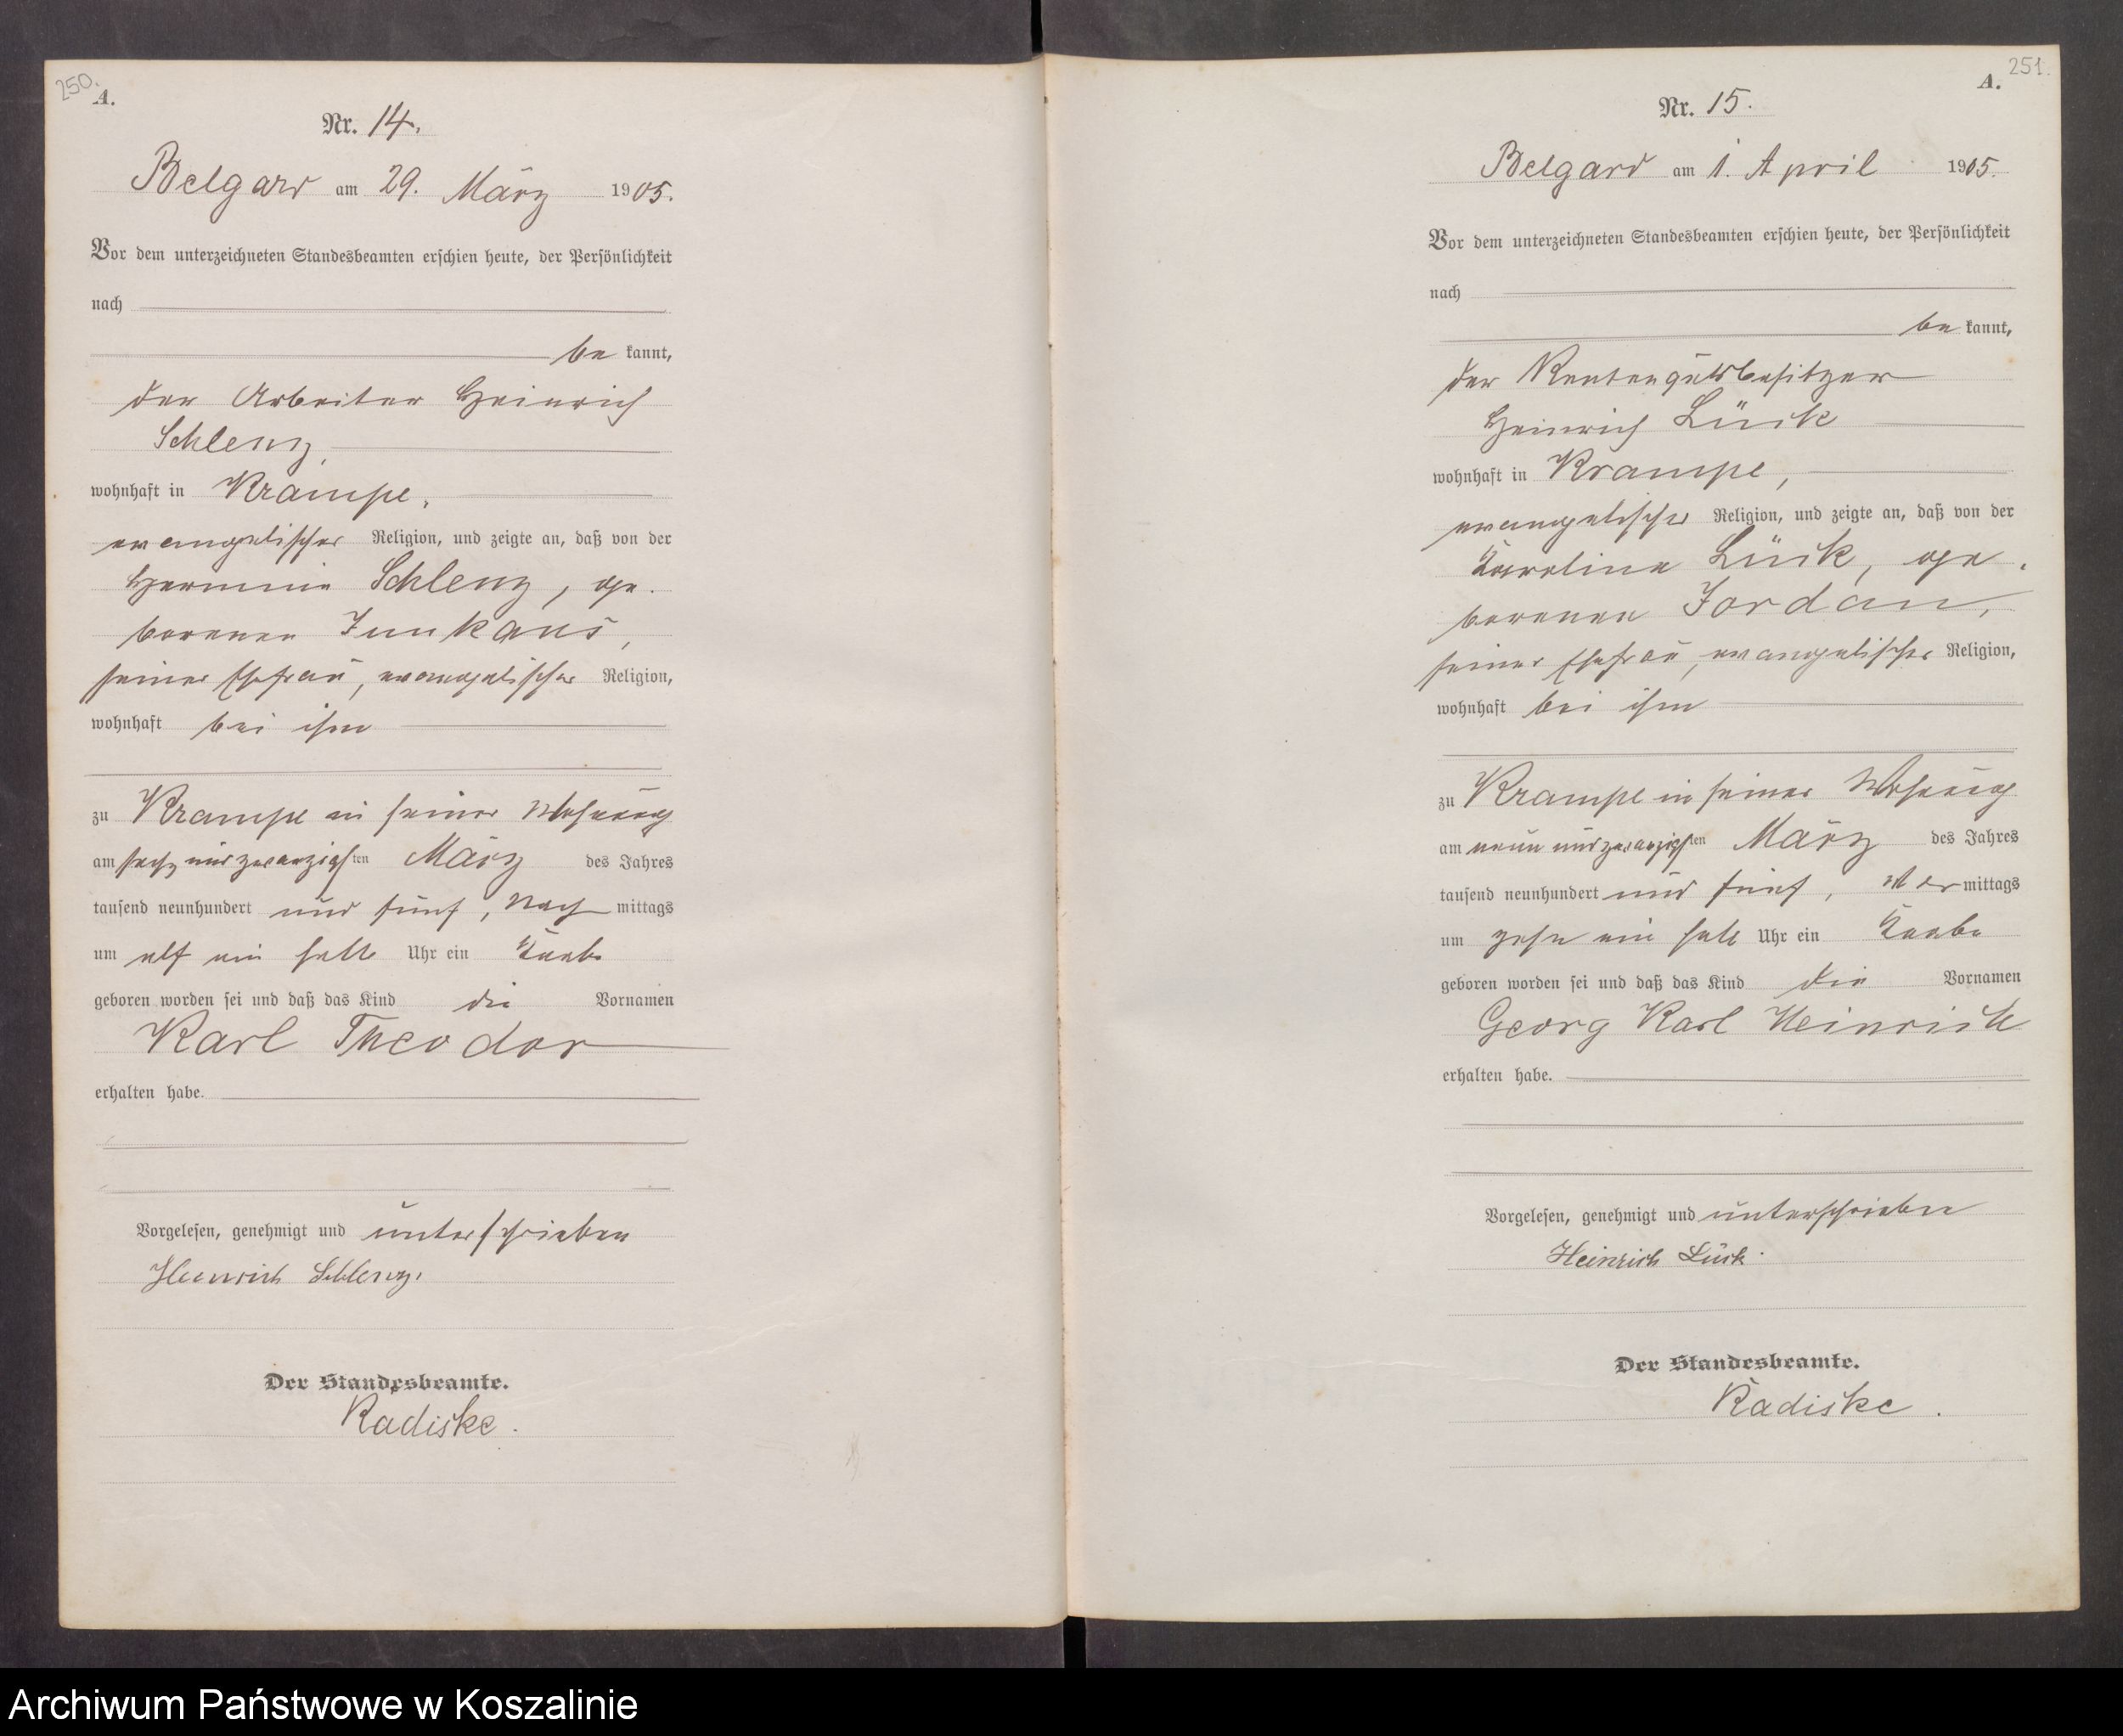 250.
A.
Nr. 14.
Belgard am 29. März 1905.
Vor dem unterzeichneten Standesbeamten erschien heute, der Persönlichkeit
nach
be kannt,
der Arbeiter Heinrich
Schlenz,
wohnhaft in Krampe,
evangelischer Religion, und zeigte an, daß von der
Hermine Schlenz, ge-
borenen Junkans,
seiner Ehefrau, evangelischer Religion,
wohnhaft bei ihm
zu Krampe in seiner Wohnung
am sechsundzwanzigsten März des Jahres
tausend neunhundert und fünf, Nachmittags
um elf ein halb Uhr ein Knabe
geboren worden sei und daß das Kind die Vornamen
Karl Theodor
erhalten habe.
Vorgelesen, genehmigt und unterschrieben
Heinrich Schlenz.
Der Standesbeamte.
Radiske.
251.
A.
Nr. 15.
Belgard am 1. April 1905.
Vor dem unterzeichneten Standesbeamten erschien heute, der Persönlichkeit
nach
be kannt,
der Rentengutsbesitzer
Heinrich Lück
wohnhaft in Krampe,
evangelischer Religion, und zeigte an, daß von der
Karoline Lück, ge-
borenen Jordan,
seiner Ehefrau, evangelischer Religion,
wohnhaft bei ihm
zu Krampe in seiner Wohnung
am neunundzwanzigsten März des Jahres
tausend neunhundert und fünf, Vormittags
um zehn ein halb Uhr ein Knabe
geboren worden sei und daß das Kind die Vornamen
Georg Karl Heinrich
erhalten habe.
Vorgelesen, genehmigt und unterschrieben
Heinrich Lück.
Der Standesbeamte.
Radiske.
Archiwum Państwowe w Koszalinie